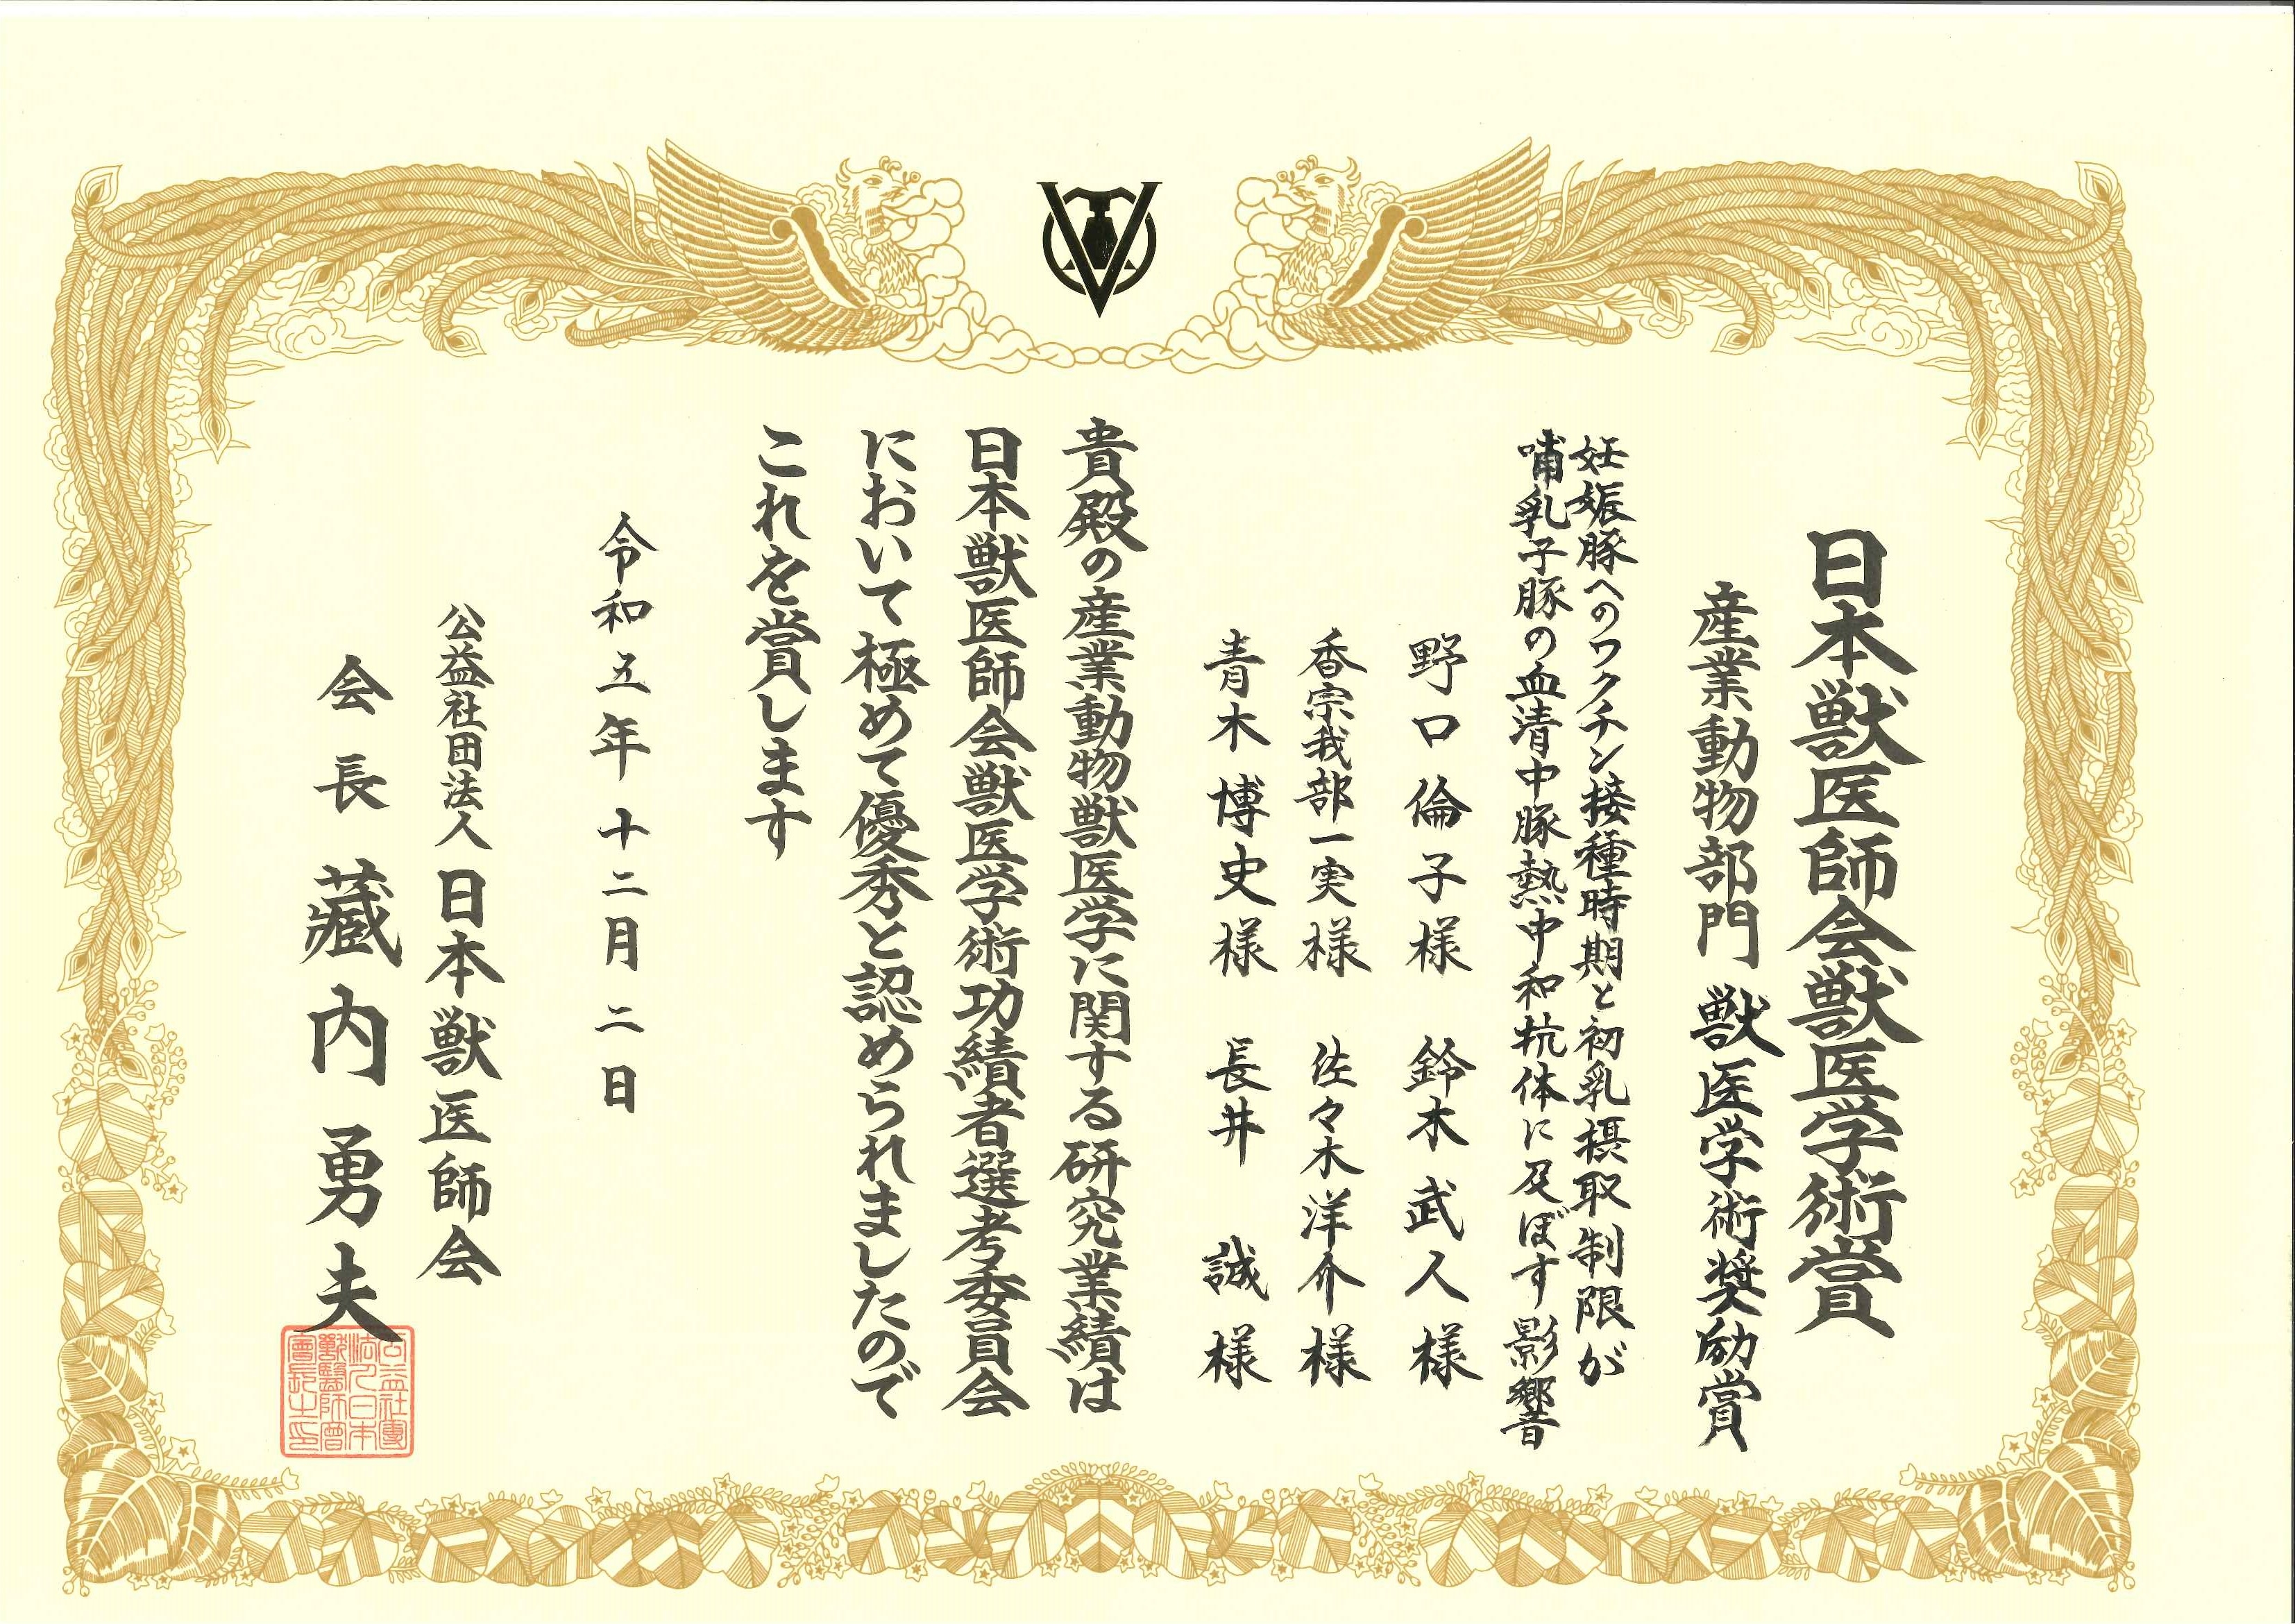 日本獣医師会獣医学術賞
産業動物部門 獣医学術奨励賞
妊娠豚へのワクチン接種時期と初乳摂取制限が
哺乳子豚の血清中豚熱中和抗体に及ぼす影響
野口倫子様 鈴木武人様
香宗我部一実様 佐々木洋介様
青木博史様 長井 誠様
貴殿の産業動物獣医学に関する研究業績は
日本獣医師会獣医学術功績者選考委員会
において極めて優秀と認められましたので
これを賞します
令和五年十二月二日
公益社団法人 日本獣医師会
会長 藏内勇夫
公益社團
法人日本
獸醫師會
會長之印